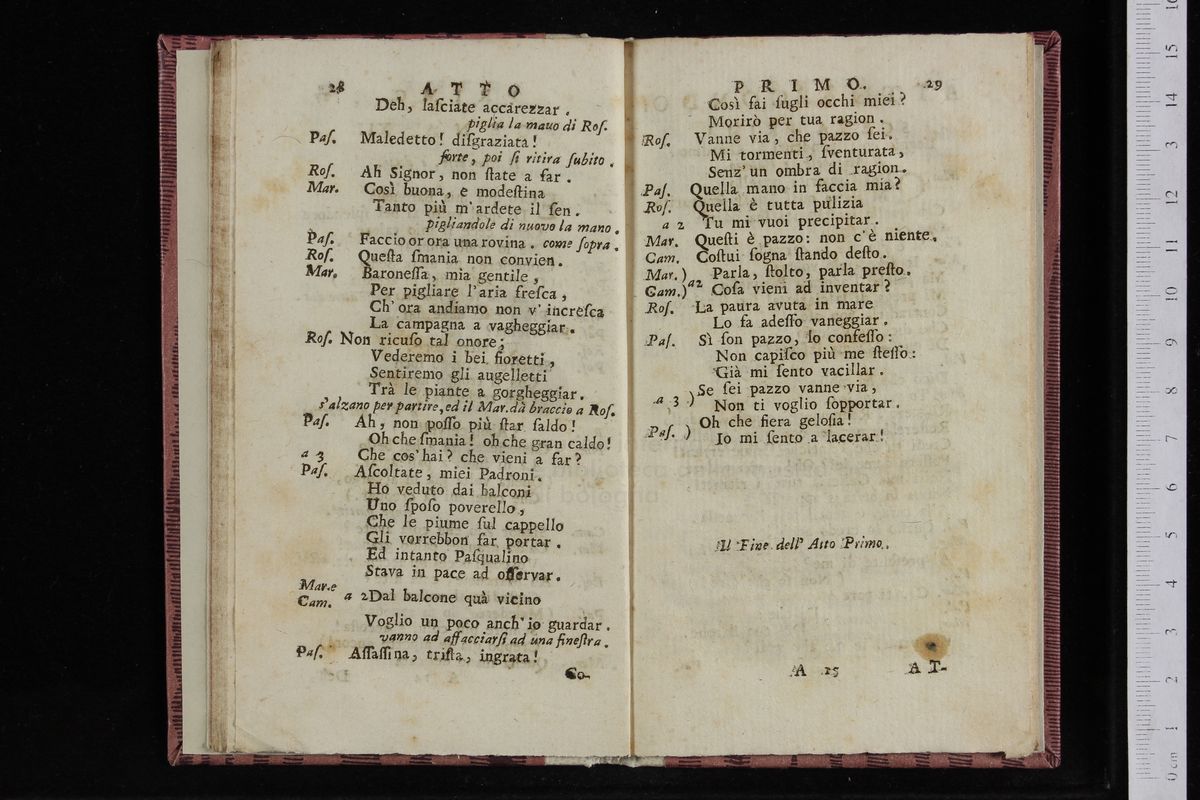 28 ATTO
Deh, laſciate accarezzar.
piglia la mauo di Roſ.
Paſ. Maledetto! diſgraziata!
forte, poi ſi ritira ſubito.
Roſ. Ah Signor, non ſtate a far.
Mar. Così buona, e modeſtina
Tanto più m'ardete il ſen.
pigliandole di nuovo la mano.
Paſ. Faccio or ora una rovina. come ſopra.
Roſ. Queſta ſmania non convien.
Mar. Baroneſſa, mia gentile,
Per pigliare l'aria freſca,
Ch'ora andiamo non v'increſca
La campagna a vagheggiar.
Roſ. Non ricuſo tal onore;
Vederemo i bei fioretti,
Sentiremo gli augelletti
Trà le piante a gorgheggiar.
s'alzano per partire, ed il Mar. dà braccio a Roſ.
Paſ. Ah, non poſſo più ſtar ſaldo!
Oh che ſmania! oh che gran caldo!
a 3 Che cos'hai? che vieni a far?
Paſ. Aſcoltate, miei Padroni.
Ho veduto dai balconi
Uno ſpoſo poverello,
Che le piume ſul cappello
Gli vorrebbon far portar.
Ed intanto Paſqualino
Stava in pace ad oſſervar.
Mar. e
Cam. a 2 Dal balcone quà vicino
Voglio un poco anch'io guardar.
vanno ad affacciarſi ad una fineſtra.
Paſ. Aſſaſſina, triſta, ingrata!
Co-
PRIMO. 29
Così fai ſugli occhi miei?
Morirò per tua ragion.
Roſ. Vanne via, che pazzo ſei.
Mi tormenti, ſventurata,
Senz'un ombra di ragion.
Paſ. Quella mano in faccia mia?
Roſ. Quella è tutta pulizia
a 2 Tu mi vuoi precipitar.
Mar. Queſti è pazzo: non c'è niente.
Cam. Coſtui ſogna ſtando deſto.
Mar. ) Parla, ſtolto, parla preſto.
Cam. ) a2 Coſa vieni ad inventar?
Roſ. La paura avuta in mare
Lo fa adeſſo vaneggiar.
Paſ. Sì ſon pazzo, lo confeſſo:
Non capiſco più me ſteſſo:
Già mi ſento vacillar.
a 3 ) Se ſei pazzo vanne via,
Non ti voglio ſopportar.
Paſ. ) Oh che fiera geloſia!
Io mi ſento a lacerar!
Il Fine dell' Atto Primo.
A 15 AT-